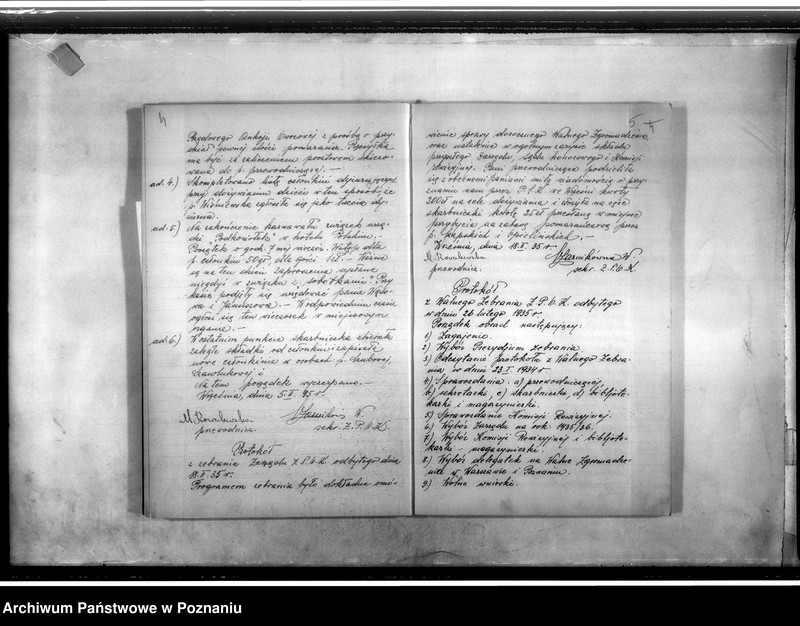 4
Rządowego Funkcji Owocowej z prośbą o przy-
dział pewnej ilości pomarańcz. Przesyłka
ma być za zaliczeniem pocztowem skiero-
wana do p. przewodniczącej. -
ad. 4.) Skompletowano listę członkiń dyżurujących
przy dożywianiu dzieci w ten sposób że
p. Wiśniewska zgłosiła się jako trzecia dy-
żurna.
ad. 5.) Na zakończenie karnawału związek urzą-
dzi "Podkoziołek" w hotelu
Początek o godz. 7 mej wieczór. Wstęp dla
p. członkiń 50 gr. dla gości 1 zł. -
są na ten dzień zaproszenia wysłane
między w związku z "sobótkami".
podjęły się urządzać panie
i Janusowa. - W odpowiednim czasie
ogłosi się ten wieczorek w miejscowym
organie. -
ad. 6.) W ostatnim punkcie skarbniczka zbierała
zaległe składki od członkiń i zapisała
nowe członkinie w osobach p.
i
Na tem porządek wyczerpano. -
Września, dnia 5.II.35 r.
M. Kowalewska
przewodnicz.
W.
sekr. Z.P.O.K.
Protokół
z zebrania Zarządu Z.P.O.K. odbytego dnia
18.II.35 r.
Programem zebrania było dokładne omó-
5
wienie sprawy dorocznego Walnego Zgromadzenia
oraz ustalenie w ogólnym zarysie składu
przyszłego Zarządu, Sądu honorowego i Komisji
Rewizyjnej. Pani przewodnicząca podzieliła
się z obecnemi paniami miłą wiadomością o przy-
znaniu nam przez P.C.K. we Wrześni kwoty
200 zł na cele dożywiania i złożyła na ręce
skarbniczki kwotę 25 zł przesłaną w miejsce
przybycia na zabawę pomarańczową przez
p. i
Września, dnia 18.II.35 r.
M. Kowalewska
przewodnicz.
W.
sekr. Z.P.O.K.
Protokół
z Walnego Zebrania Z.P.O.K. odbytego
w dniu 26 lutego 1935 r.
Porządek obrad następujący:
1) Zagajenie.
2) Wybór Prezydjum zebrania
3) Odczytanie protokółu z Walnego Zebra-
nia w dniu 23.I.1934 r.
4) Sprawozdania: a) przewodniczącej
b) sekretarki, c) skarbniczki, d) bibljote-
karki i magazynierki.
5) Sprawozdanie Komisji Rewizyjnej.
6) Wybór Zarządu na rok 1935/36.
7) Wybór Komisji Rewizyjnej i bibljote-
karki - magazynierki.
8) Wybór delegatek na Walne Zgromadze-
nie w Warszawie i Poznaniu.
9) Wolne wnioski.
Archiwum Państwowe w Poznaniu